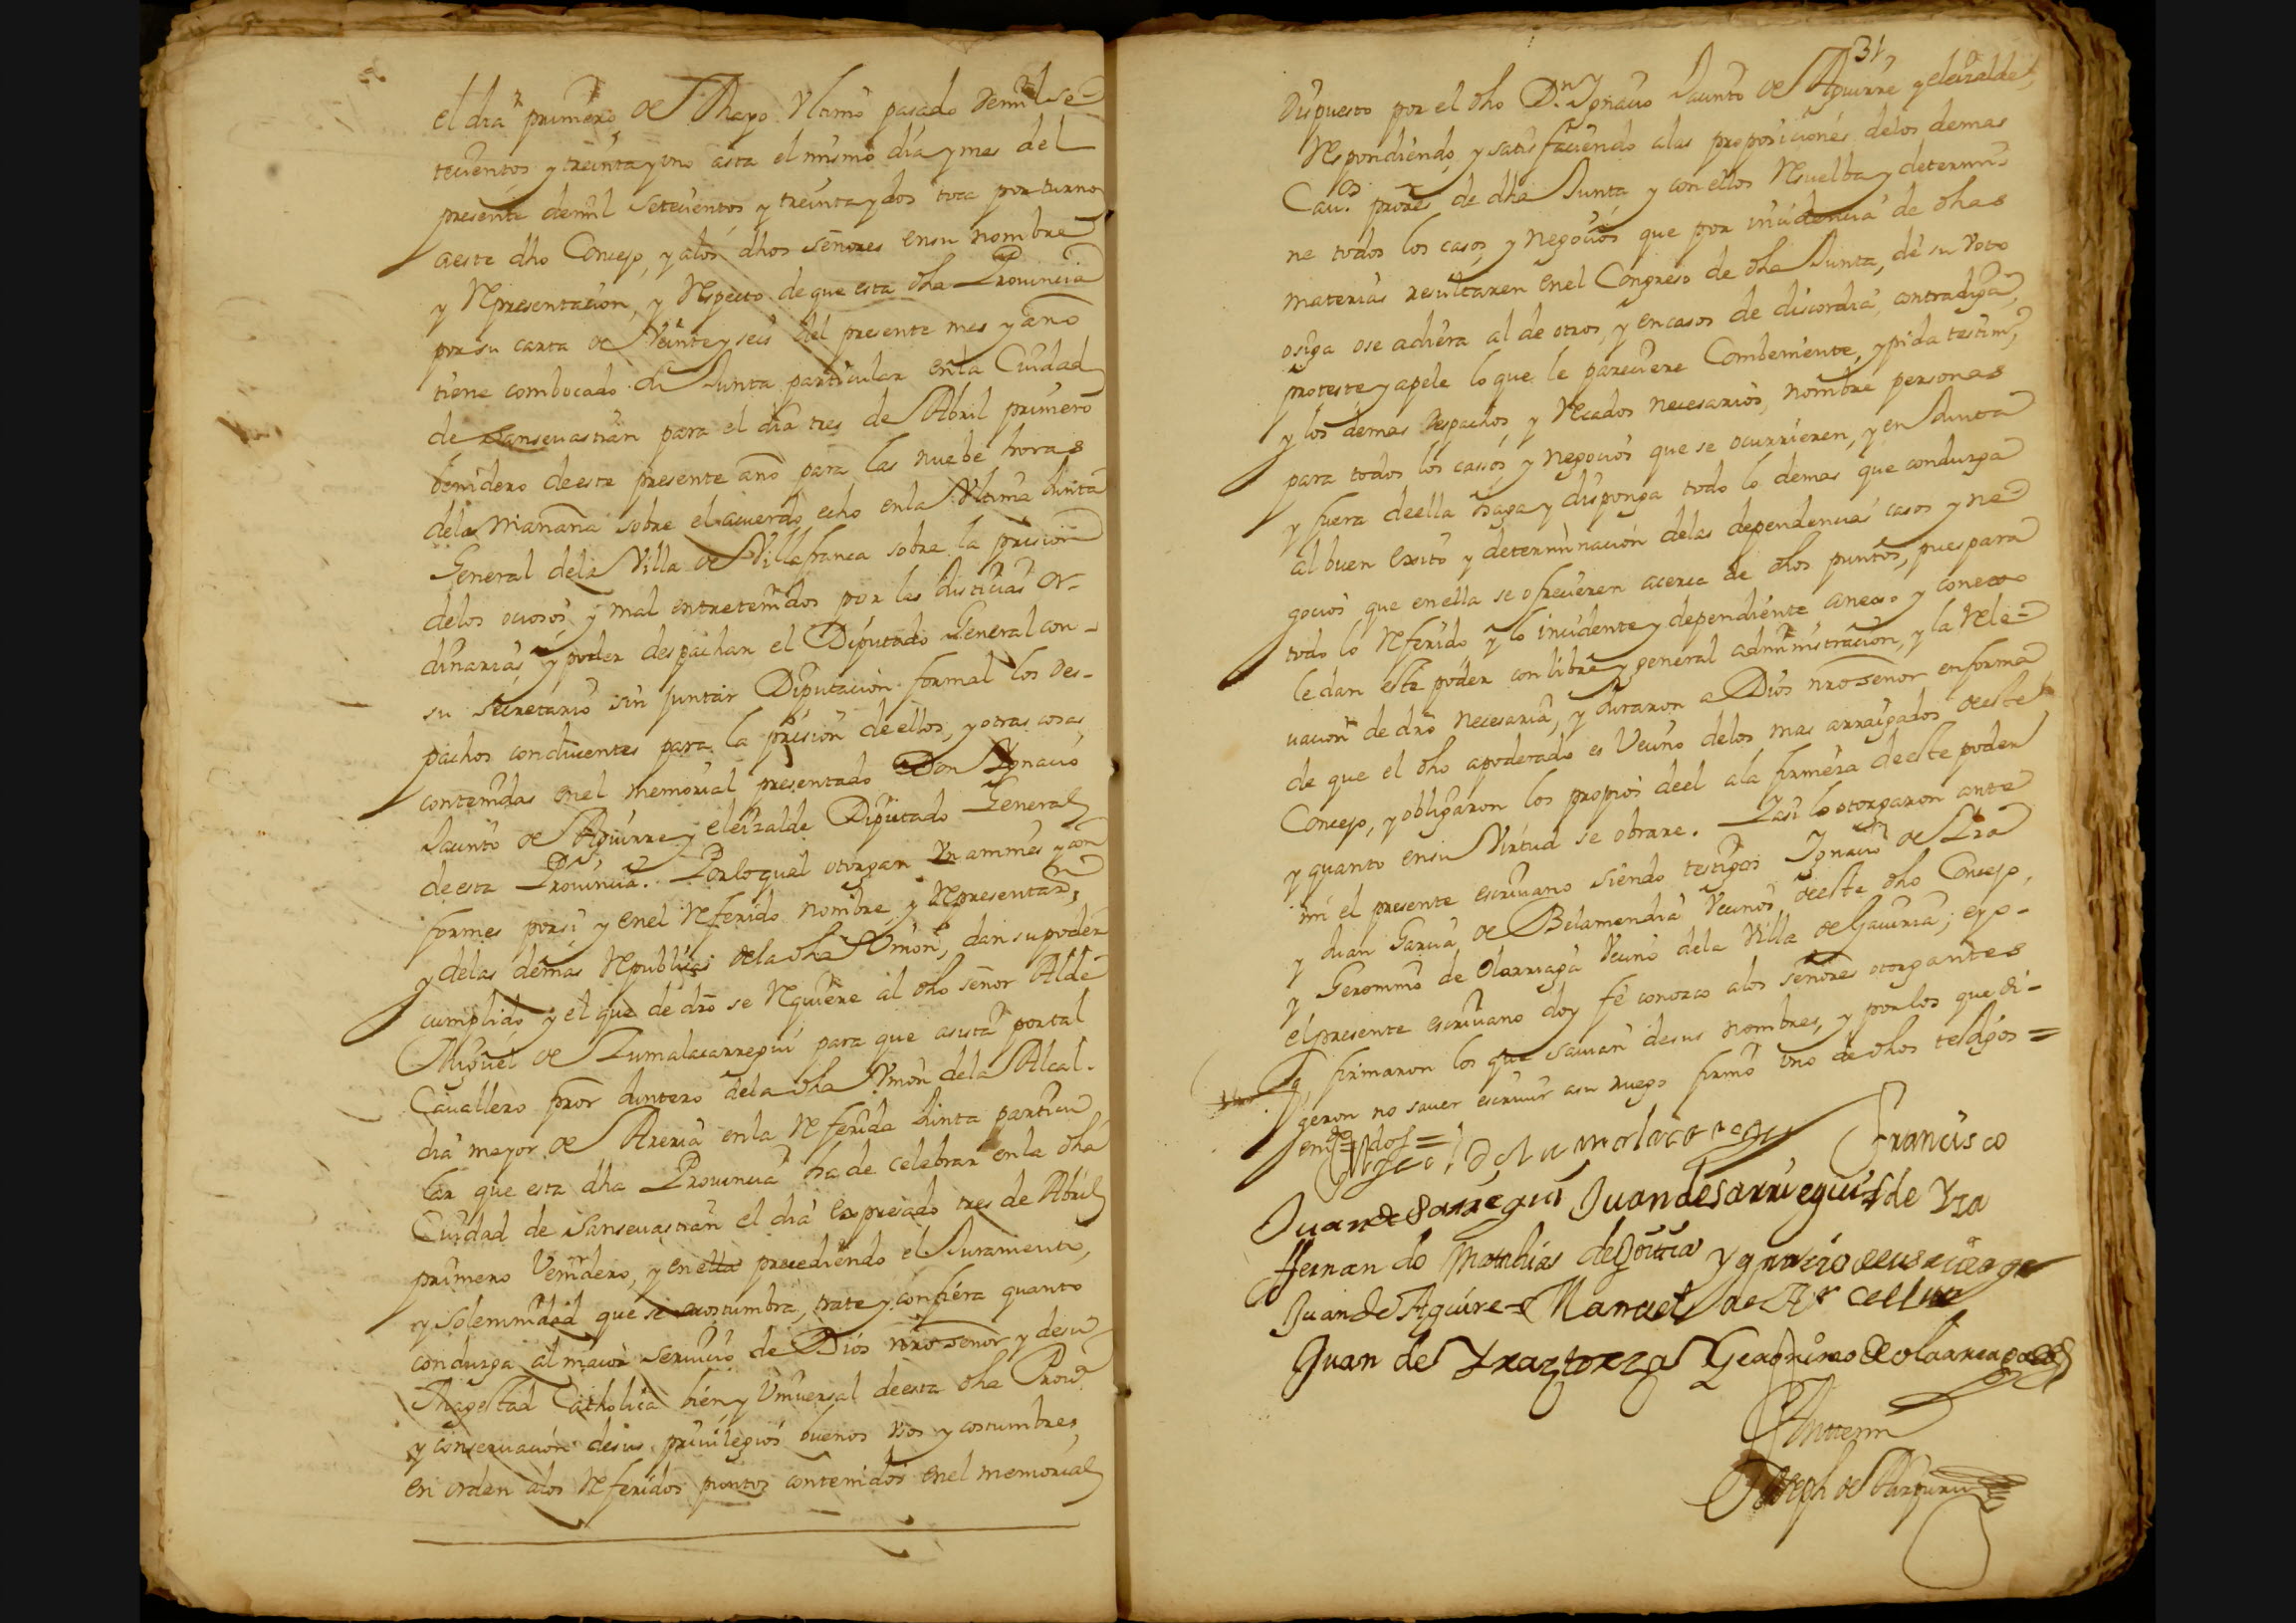 el dia primero de Mayo Vltimo pasado demil se-
tecientos y treinta y uno asta el mismo dia y mes del
presente demil setecientos y treinta y dos toca por turno
aeste dho Concejo, y alos dhos señores ensu nombre
y Representacion, y Respecto de que esta dha Prouincia
por su carta de Veinte y seis del presente mes y año
tiene combocado a Junta particular enla Ciudad
de Sanseuastian para el dia tres de Abril primero
benidero deeste presente año para las nuebe horas
dela mañana sobre el acuerdo echo enla Vltima Junta
General dela Villa de Villafranca sobre la prision
delos ociosos, y mal entretenidos por las Justicias or-
dinarias, y poder despachar el Diputado General con-
su secretario sin juntar Diputacion formal los des-
pachos conducentes para la prision deellos, y otras cosas
contenidas enel memorial presentado Don Ygnacio
Jacinto de Aguirre y eleizalde Diputado General
deesta Prouincia. Porloqual otorgan Vnanimes y con
formes porsi y enel Referido nombre y Representaon,
y delas demas Republicas dela dha Vnion, dan su poder
cumplido y el que de dro se Requiere al dho señor Alde
Miguel de Zumalacarregui para que asista portal
Cauallero pror Juntero dela dha Vnion dela Alcal-
dia mayor de Areria enla Referida Junta particu
lar que esta dha Prouincia ha de celebrar enla dha
Ciudad de Sanseuastian el dia expresado tres de Abril
primero Venidero, y enella precediendo el Juramento,
y solemnidad que se acostumbra, trate y confiera quanto
conduzga al maior seruicio de Dios nro señor y desu
Magestad Catholica bien y Vniuersal deesta dha Prouª
y conseruacion desus priuilegios buenos vsos y costumbres
en orden alos Referidos puntos contenidos enel memorial
31
dispuesto por el dho Dn Ygnacio Jacinto de Aguirre y eleizalde,
Respondiendo y satisfaciendo alas proposiciones delos demas
Cauos prores de dha Junta y con ellos Resuelba y determi-
ne todos los casos, y negocios que por incidencia de dhas
materias resultaren enel Congreso de dha Junta, dé su Voto
osiga ose adiera al de otros, y encasos de discordia, contradiga,
proteste y apele lo que le pareciere Combeniente, y pida testimº,
y los demas despachos y Recados necesarios, nombre personas
para todos los cassos, y negocios que se ocurrieren, y en Junta
y fuera deella haga y disponga todo lo demas que conduzga
al buen exsito y determinacion delas dependencias casos y ne-
gocios que enella se ofrecieren acerca de dhos puntos, pues para
todo lo Referido y lo incidente y dependiente anexo y conexo
le dan este poder con libre y general administracion, y la Rele-
uacion de dro necesaria, y Juraron a Dios nro señor enforma
de que el dho apoderado es Vecino delos mas arraigados deeste
Concejo, y obligaron los propios deel ala firmeza deeste poder
y quanto ensu Virtud se obrare. Yasi lo otorgaron ante
mi el presente escriuano siendo testigos Ygnacio de Yza
y Juan Garcia de Belamendia Vecinos deeste dho Concejo,
y Geronimo de Olarriaga Vecino dela Villa de Gauiria; e yo-
el presente escriuano doy fé conozco alos señores otorgantes
q firmaron los que sauian desus nombres, y porlos que di-
geron no sauer escriuir asu ruego firmó vno de dhos testigos =
Francisco
Juan de Sarriegui Juan de Sarriegui de Yza
Hernando Mathias de Goitia
Juan de Aguirre Manuel de
Juan de Yraztorza Geronimo de olaarreaga
Antemi
Joseph de